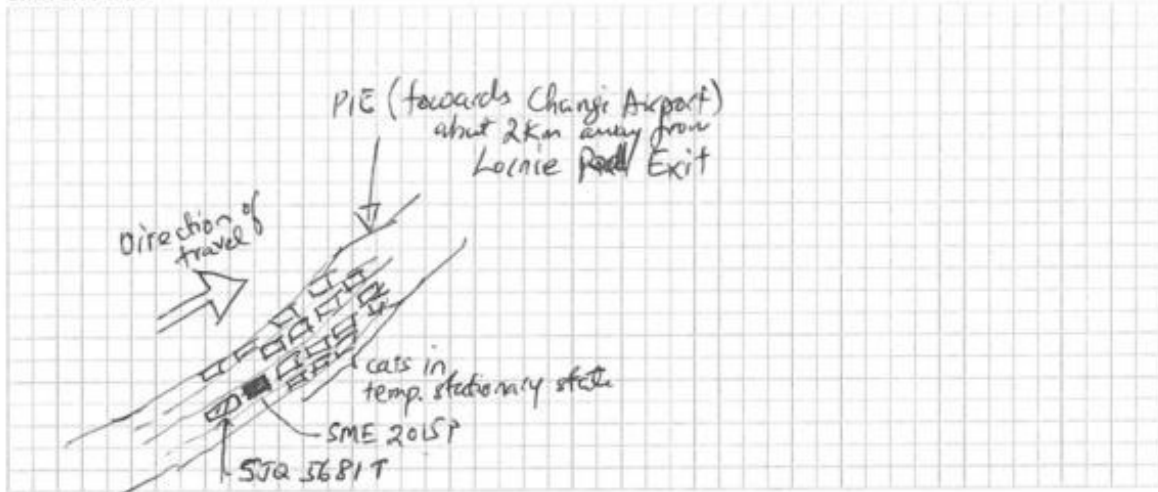 PIE (towards Changi Airport)
about 2Km away from
Lornie Exit
Direction of
travel
cars in
temp. stationary state
SME 2015P
SJQ 5681T